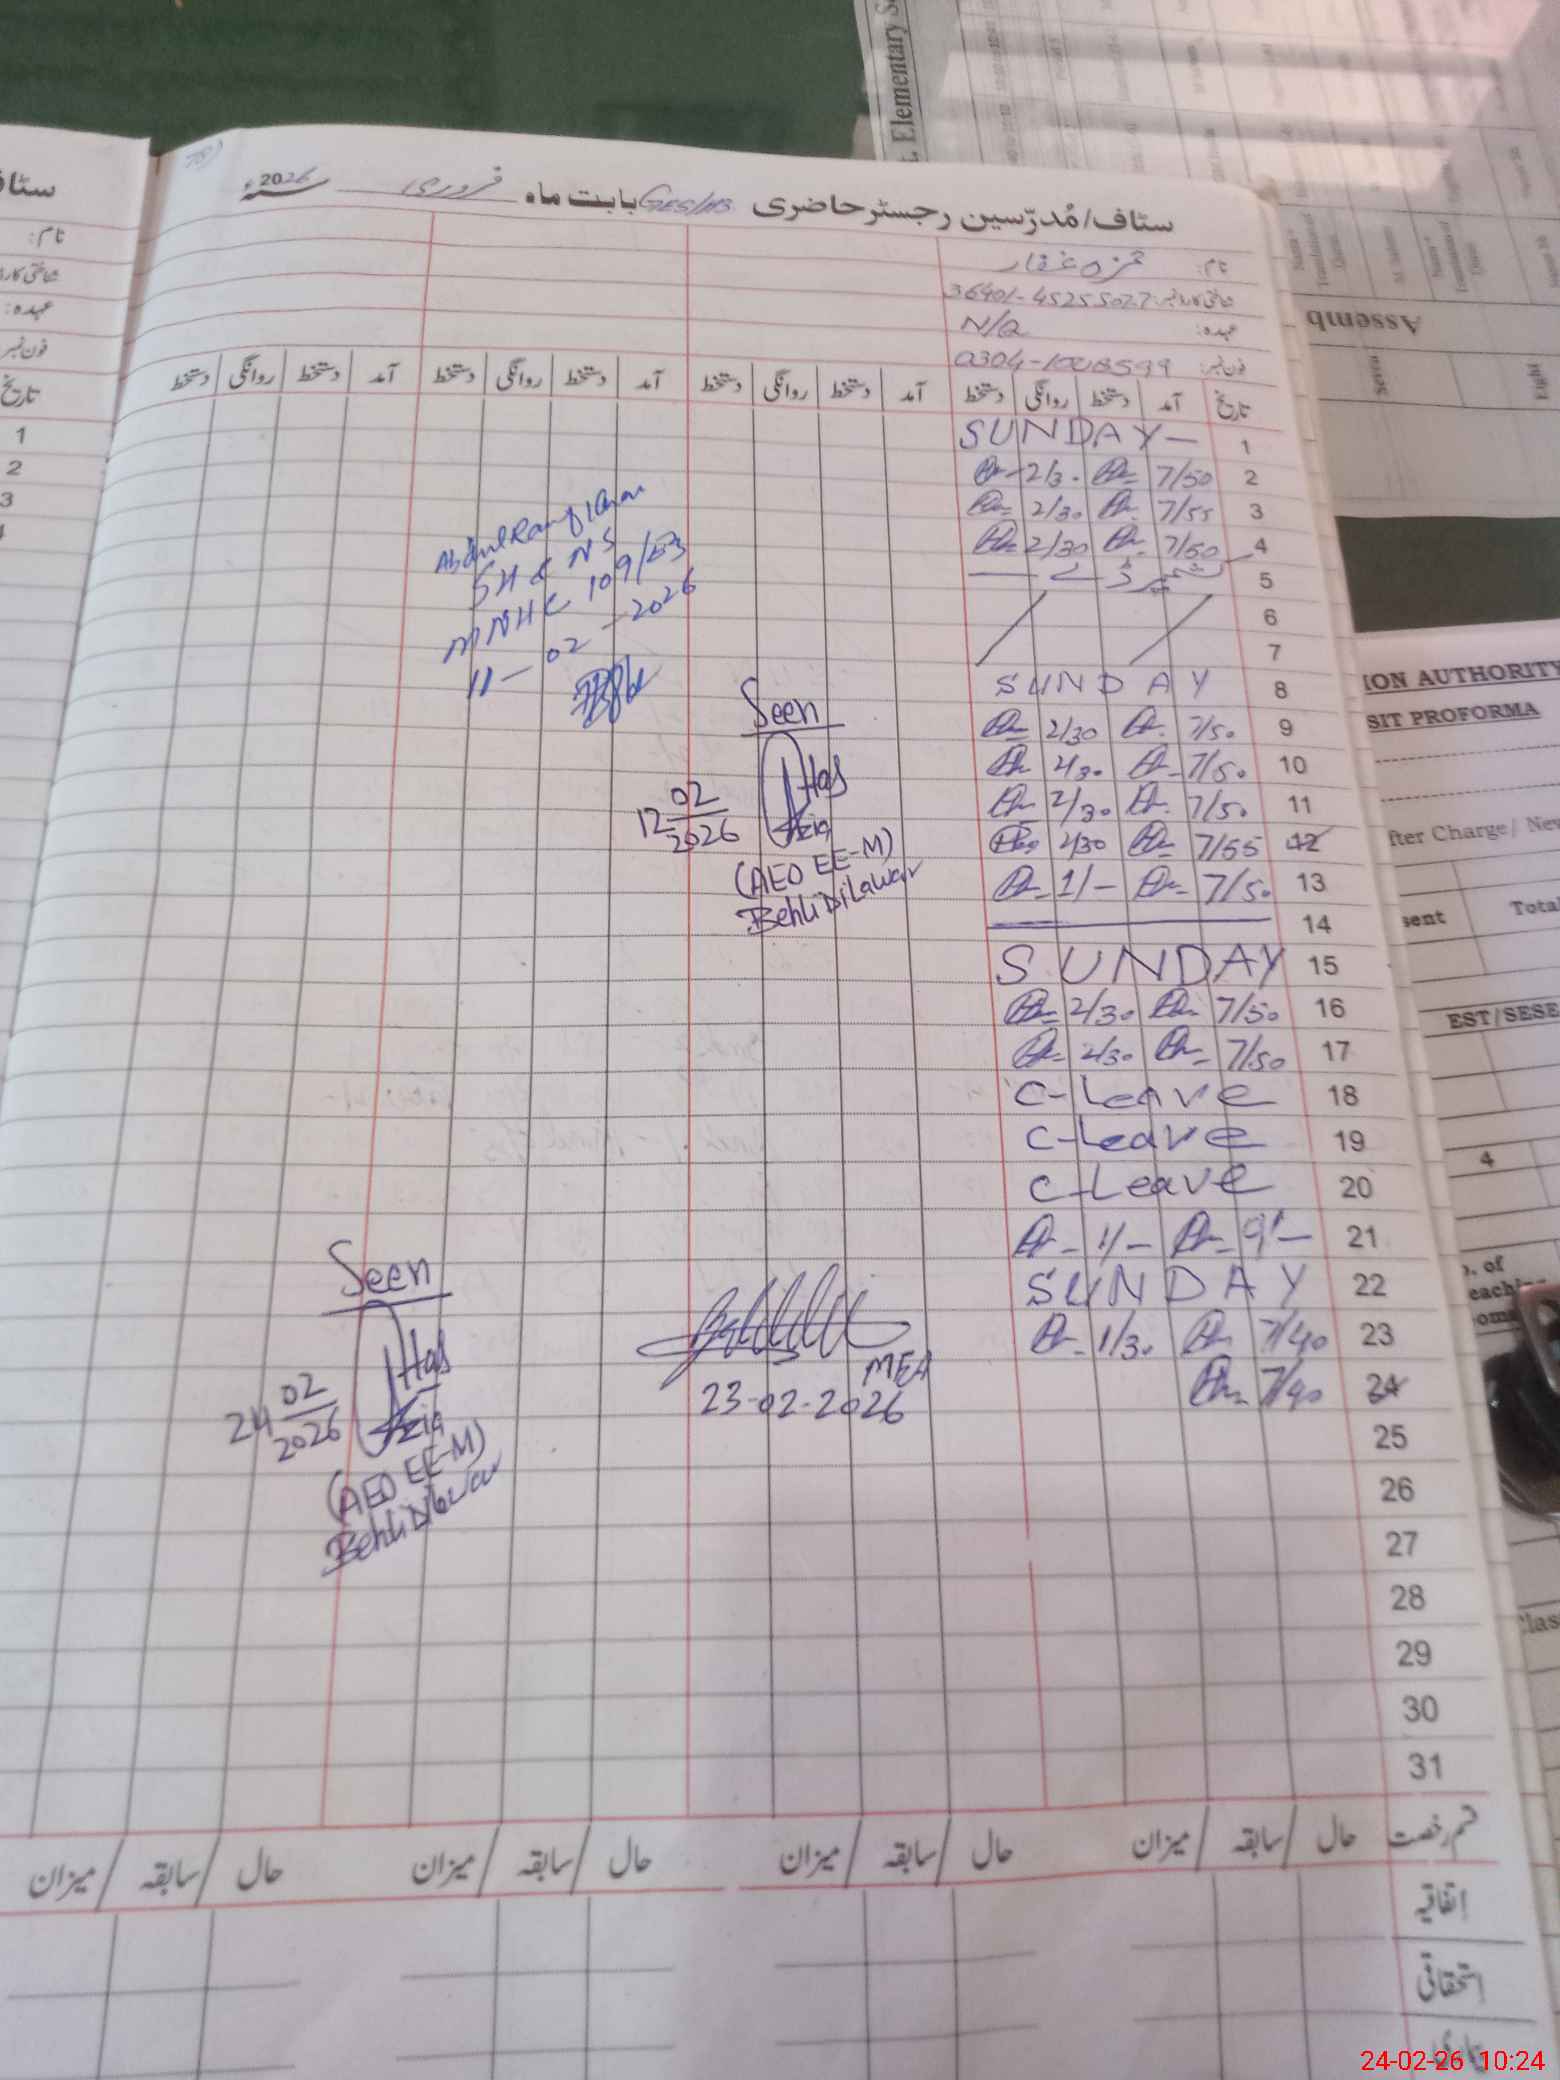 ستاف/مُدرّسین رجسٹر حاضری GES/HS بابت ماہ فروری 2026ء
نام: حمزہ غفار
شناختی کارڈ نمبر: 36401-4525502.7
عہدہ: N/Q
فون نمبر:
تاریخ آمد دستخط روانگی دستخط آمد دستخط روانگی دستخط آمد دستخط روانگی دستخط آمد دستخط روانگی دستخط
1 SUNDAY
2 7/50 2/3.
3 7/55 2/30
4 7/50 2/30
5
6
7
8 SUNDAY
9 7/50 2/30
10 7/50 2/30
11 7/50 2/30
12 7/55 2/30
13 7/50 1/-
14
15 SUNDAY
16 7/50 2/30
17 7/50 2/30
18 C-Leave
19 C-Leave
20 C-Leave
21 9/- 1/-
22 SUNDAY
23 7/40 1/30
24 7/40
25
26
27
28
29
30
31
Abdul Rauf Khan
SH & NS
MNHC 109/EB
11-02-2026
Seen
12 02
2026
(AEO EE-M)
Behli Dilawar
MEA
23-02-2026
Seen
24 02
2026
(AEO EE-M)
Behli Dilawar
قسم رخصت حال / سابقہ / میزان حال / سابقہ / میزان حال / سابقہ / میزان حال / سابقہ / میزان
اتفاقیہ
استحقاقی
ستاف
نام:
شناختی کارڈ
عہدہ:
فون نمبر
تاریخ
1
2
3
. Elementary S
Assemb
Seven
Eight
ION AUTHORITY
SIT PROFORMA
fter Charge/ New
sent Total
EST/SESE
4
o. of
each
oms
Clas
24-02-26 10:24